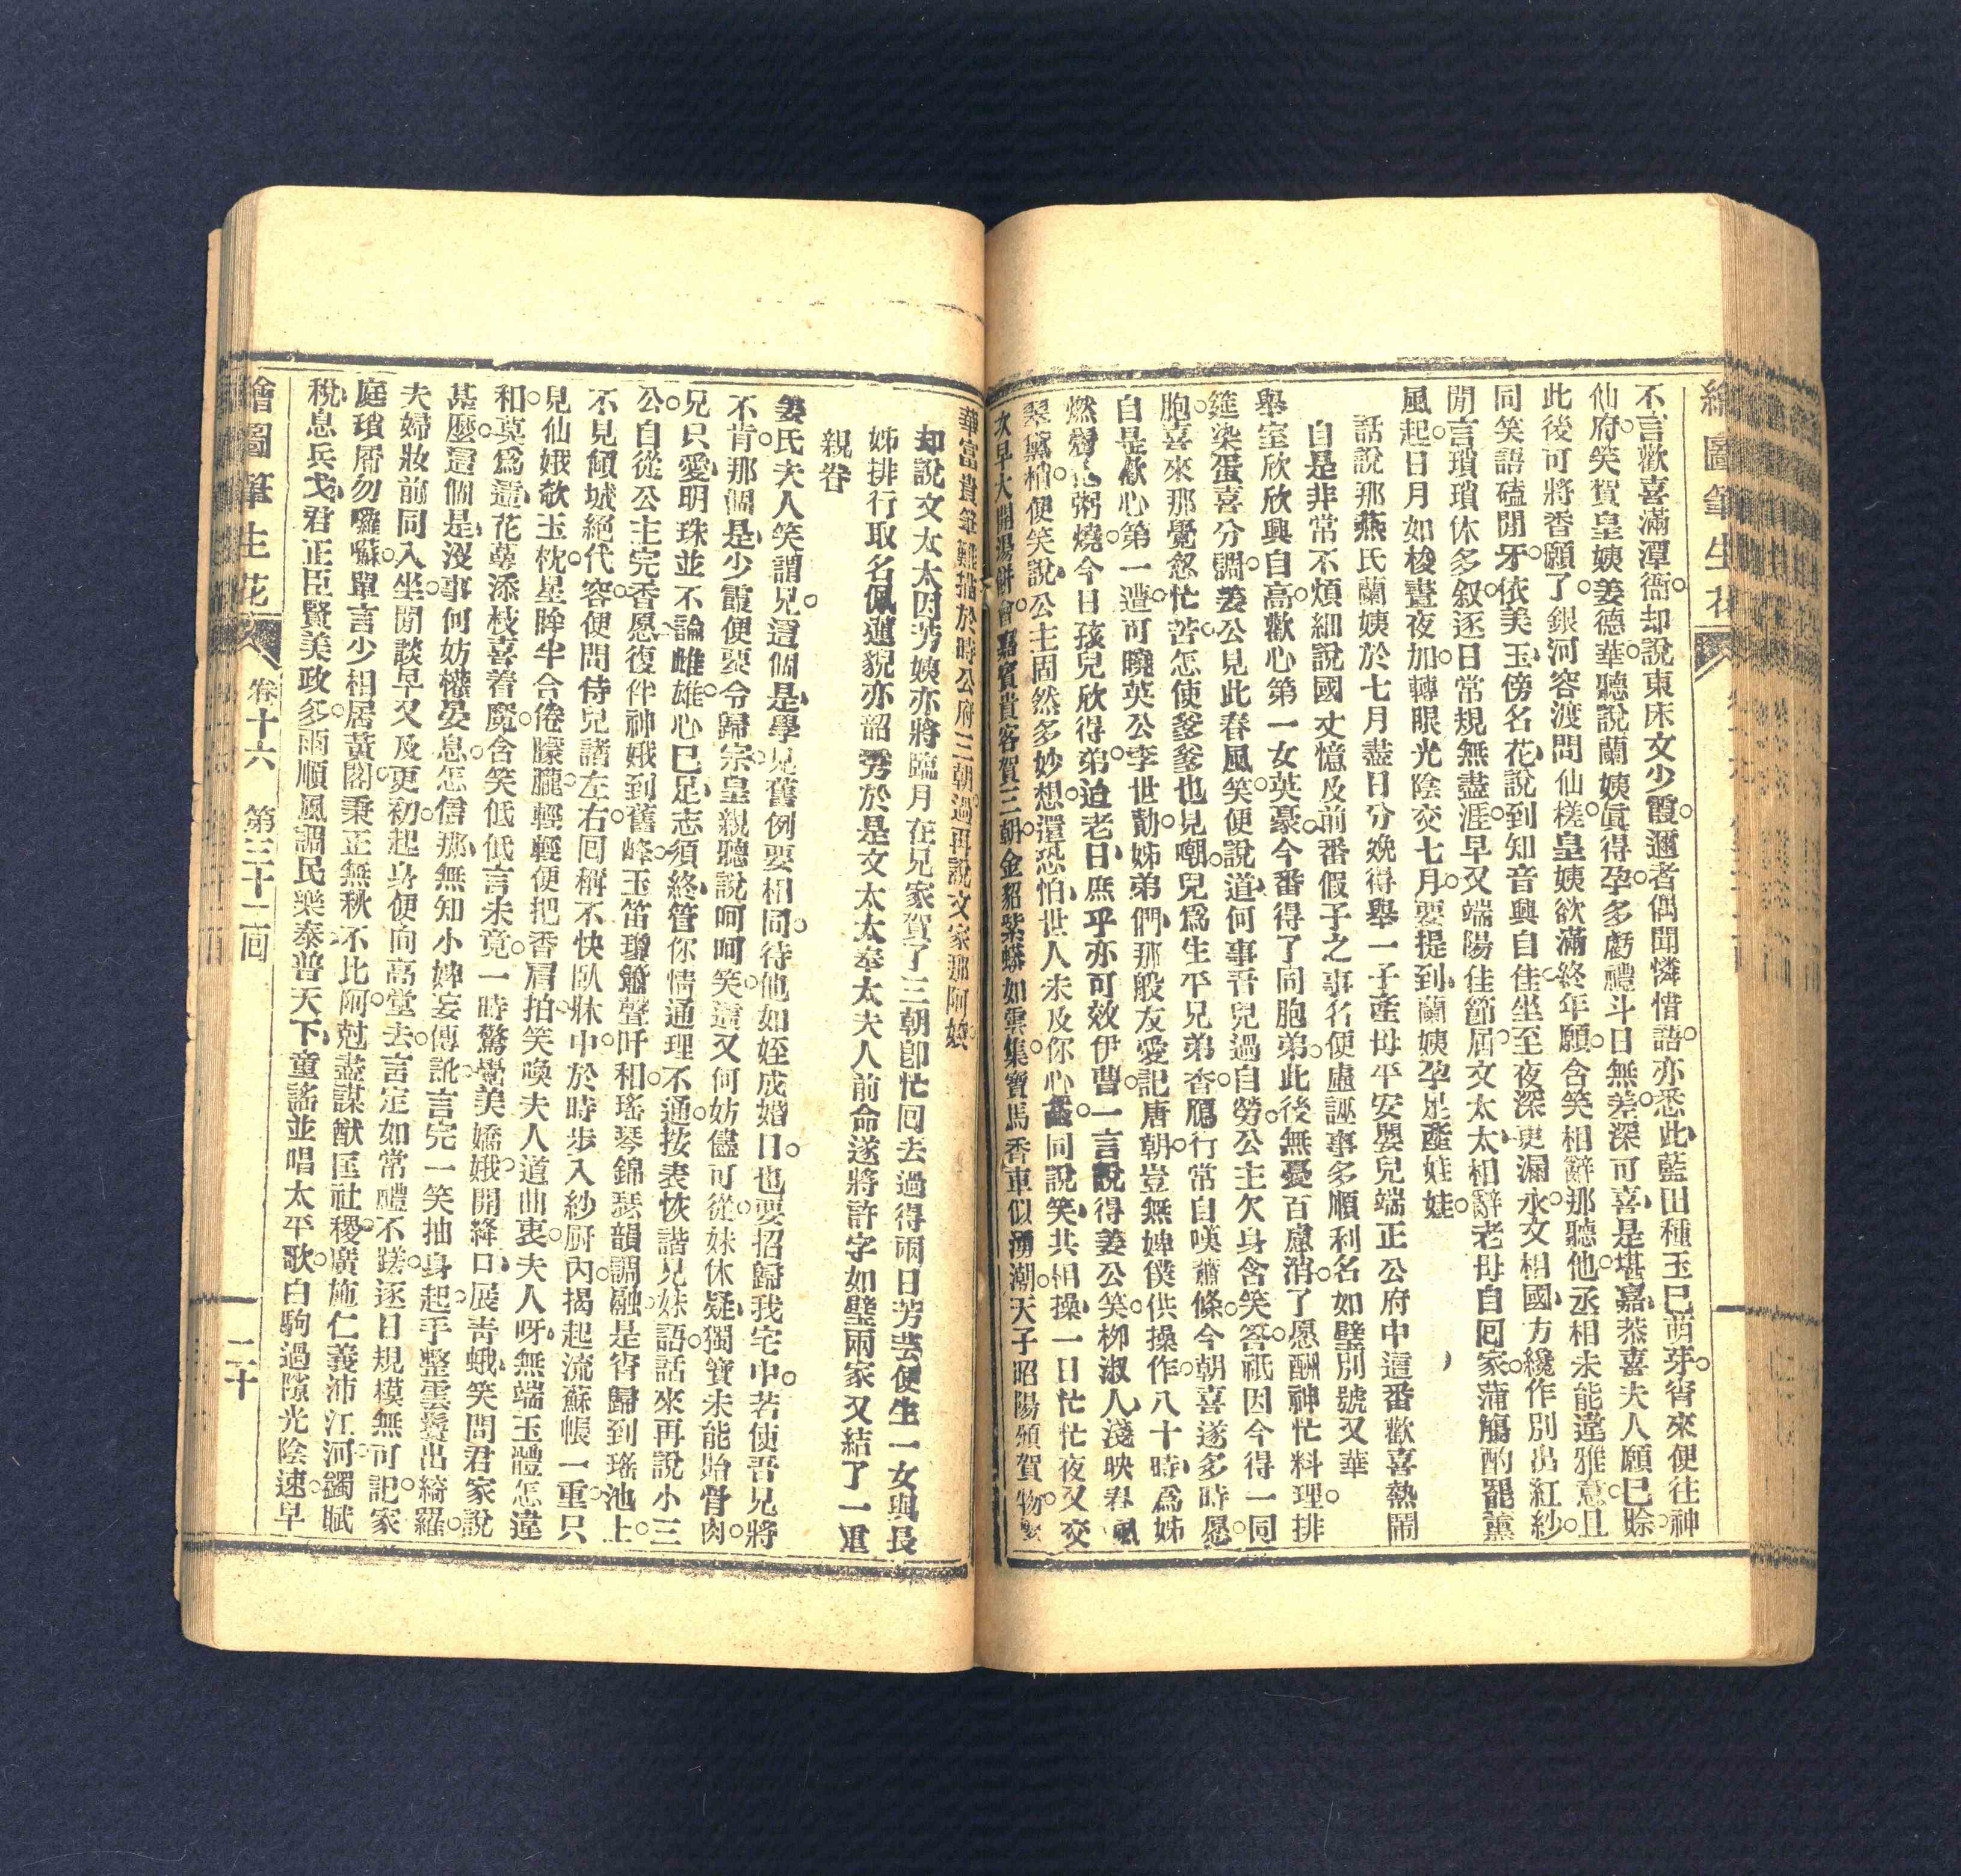 繪圖筆生花
不言歡喜滿潭衙。却說東床文少霞。邇者偶聞憐惜語。亦悉此、藍田種玉已萌芽。宵來便往神
仙府。笑賀皇姨姜德華。聽說蘭姨眞得孕。多虧禮斗日無差。深可喜、是堪嘉。恭喜夫人願已賒。
此後可將香願了。銀河容渡問仙槎。皇姨欲滿終年願。含笑相辭那聽他。丞相未能違雅意。且
同笑語磕閒牙。依美玉、傍名花。說到知音興自佳。坐至夜深更漏永。文相國、方纔作別出紅紗。
閒言瑣瑣休多叙。逐日常規無盡涯。早又端陽佳節屆。文太太、相辭老母自回家。蒲觴酌罷薰
風起。日月如梭晝夜加。轉眼光陰交七月。要提到、蘭姨孕足產娃娃。
話說那燕氏蘭姨於七月盡日分娩得舉一子產母平安嬰兒端正公府中這番歡喜熱鬧
自是非常不煩細說國丈憶及前番假子之事名便虛誣事多順利名如璧別號又華
舉室欣欣興自高。歡心第一女英豪。今番得了同胞弟。此後無憂百慮消。了愿酬神忙料理。排
筵染蛋喜分調。姜公見此春風笑。便說道、何事吾兒過自勞。公主欠身含笑答。祇因今得一同
胞。喜來那覺怱忙苦。怎使爹爹也見嘲。兒爲生平兄弟杳。鴈行常自嘆蕭條。今朝喜遂多時愿。
自是歡心第一遭。可曉英公李世勣。姊弟們、那般友愛記唐朝。豈無婢僕供操作。八十時、爲姊
燃鬚化粥燒。今日孩兒欣得弟。迨老日、庶乎亦可效伊曹。一言說得姜公笑。柳淑人、淺映春風
翠黛梢。便笑說、公主固然多妙想。還恐怕、世人未及你心苗。同說笑、共相操。一日忙忙夜又交
次早大開湯餅會。嘉賓貴客賀三朝。金貂紫蟒如雲集。寶馬香車似湧潮。天子昭陽頒賀物。繁
華富貴筆難描。於時公府三朝過。再說文家那阿嬌。
却說文太太因芳姨亦將臨月在兄家賀了三朝卽忙回去過得兩日芳芸便生一女與長
姊排行取名佩蓮貌亦韶秀於是文太太奉太夫人前命遂將許字如璧兩家又結了一重
親眷
姜氏夫人笑謂兄。這個是、學兄舊例要相同。待他如姪成婚日。也要招歸我宅中。若使吾兄將
不肯。那個是、少霞便要令歸宗。皇親聽說呵呵笑。這又何妨儘可從。妹休疑、獨寶未能貽骨肉。
兄只愛、明珠並不論雌雄。心已足、志須終。管你情通理不通。按表恢諧兄妹語。話來再說小三
公。自從公主完香愿。復伴神娥到舊峰。玉笛瓊簫聲吀和。瑤琴錦瑟韻調融。是宵歸到瑤池上。
不見傾城絕代容。便問侍兒諸左右。回稱不快臥牀中。於時步入紗厨內。揭起流蘇帳一重。只
見仙娥欹玉枕。星眸半合倦朦朧。輕輕便把香肩拍。笑喚夫人道曲衷。夫人呀、無端玉體怎違
和。莫爲這、花蕚添枝喜着魔。含笑低低言未竟。一時驚覺美嬌娥。開絳口、展靑蛾。笑問君家說
甚麼。這個是、沒事何妨權晏息。怎信那、無知小婢妄傳訛。言完一笑抽身起。手整雲鬟出綺羅。
夫婦妝前同入坐。閒談早又及更初。起身便向高堂去。言定如常禮不蹉。逐日規模無可記。家
庭瑣屑勿囉囌。單言少相居黃閣。秉正無秋不比阿。尅盡謀猷匡社稷。廣施仁義沛江河。蠲賦
稅、息兵戈。君正臣賢美政多。雨順風調民樂泰。普天下、童謠並唱太平歌。白駒過隙光陰速。早
繪圖筆生花 卷十六 第三十二回 二十